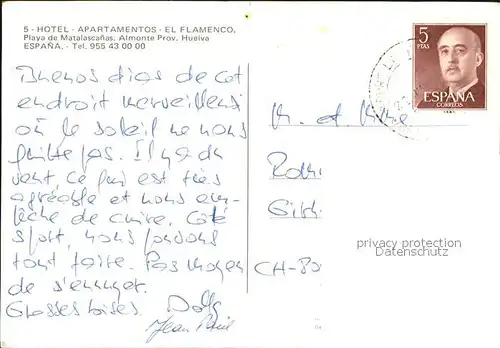 5 - HOTEL - APARTAMENTOS - EL FLAMENCO.
Playa de Matalascañas. Almonte Prov. Huelva
ESPAÑA. - Tel. 955 43 00 00
5
PTAS
ESPAÑA
CORREOS
Buenos dias de cet
endroit merveilleux
où le soleil ne nous
quitte pas. Il y a du
vent, ce qui est très
agréable et nous em-
pêche de cuire. Côté
sport, nous pouvons
tout faire. Pas moyen
de s'ennuyer.
Grosses bises. Dolly
Jean Paul
M. et Mme
CH-80
privacy protection
Datenschutz